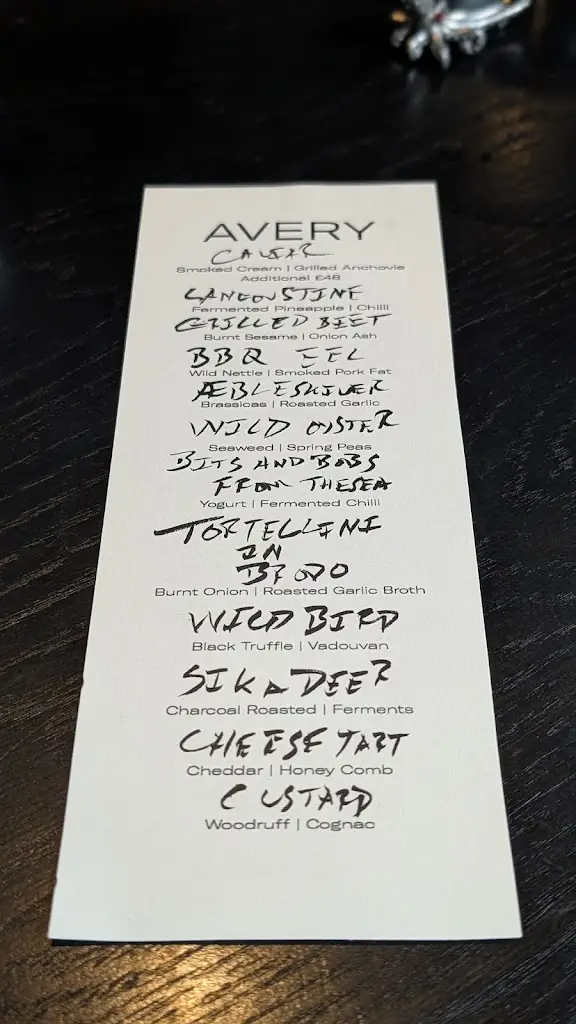 AVERY
CAVIAR
Smoked Cream | Grilled Anchovie
Additional £48
LANGOUSTINE
Fermented Pineapple | Chilli
GRILLED BEET
Burnt Sesame | Onion Ash
BBQ EEL
Wild Nettle | Smoked Pork Fat
ÆBLESKIVER
Brassicas | Roasted Garlic
WILD OYSTER
Seaweed | Spring Peas
BITS AND BOBS
FROM THE SEA
Yogurt | Fermented Chilli
TORTELLINI
IN
BRODO
Burnt Onion | Roasted Garlic Broth
WILD BIRD
Black Truffle | Vadouvan
SIKA DEER
Charcoal Roasted | Ferments
CHEESE TART
Cheddar | Honey Comb
CUSTARD
Woodruff | Cognac